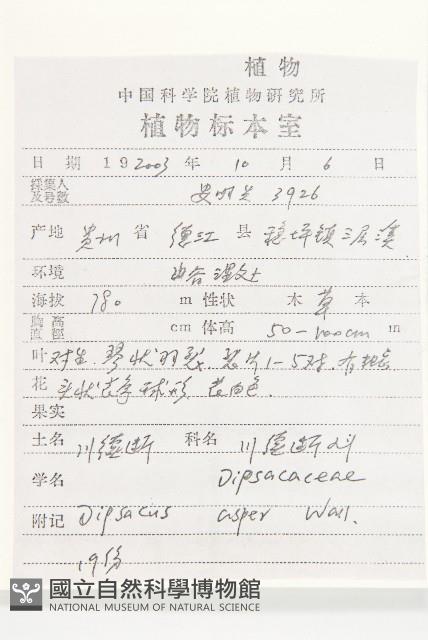 植物
中国科学院植物研究所
植物标本室
日 期 19 2003 年 10 月 6 日
採集人及号数 安明先 3926
产地 贵州 省 德江 县 稳坪镇三层溪
环境 山谷 湿
海拔 780 m 性状 木 草 本
胸高直徑 cm 体高 50-100cm m
叶 对生. 琴状羽裂. 裂片1-5对.
花 头状花序球形 花白色.
果实
土名 川续断 科名 川续断科
学名 Dipsacaceae
附记 Dipsacus asper Wall.
19份
國立自然科學博物館
NATIONAL MUSEUM OF NATURAL SCIENCE